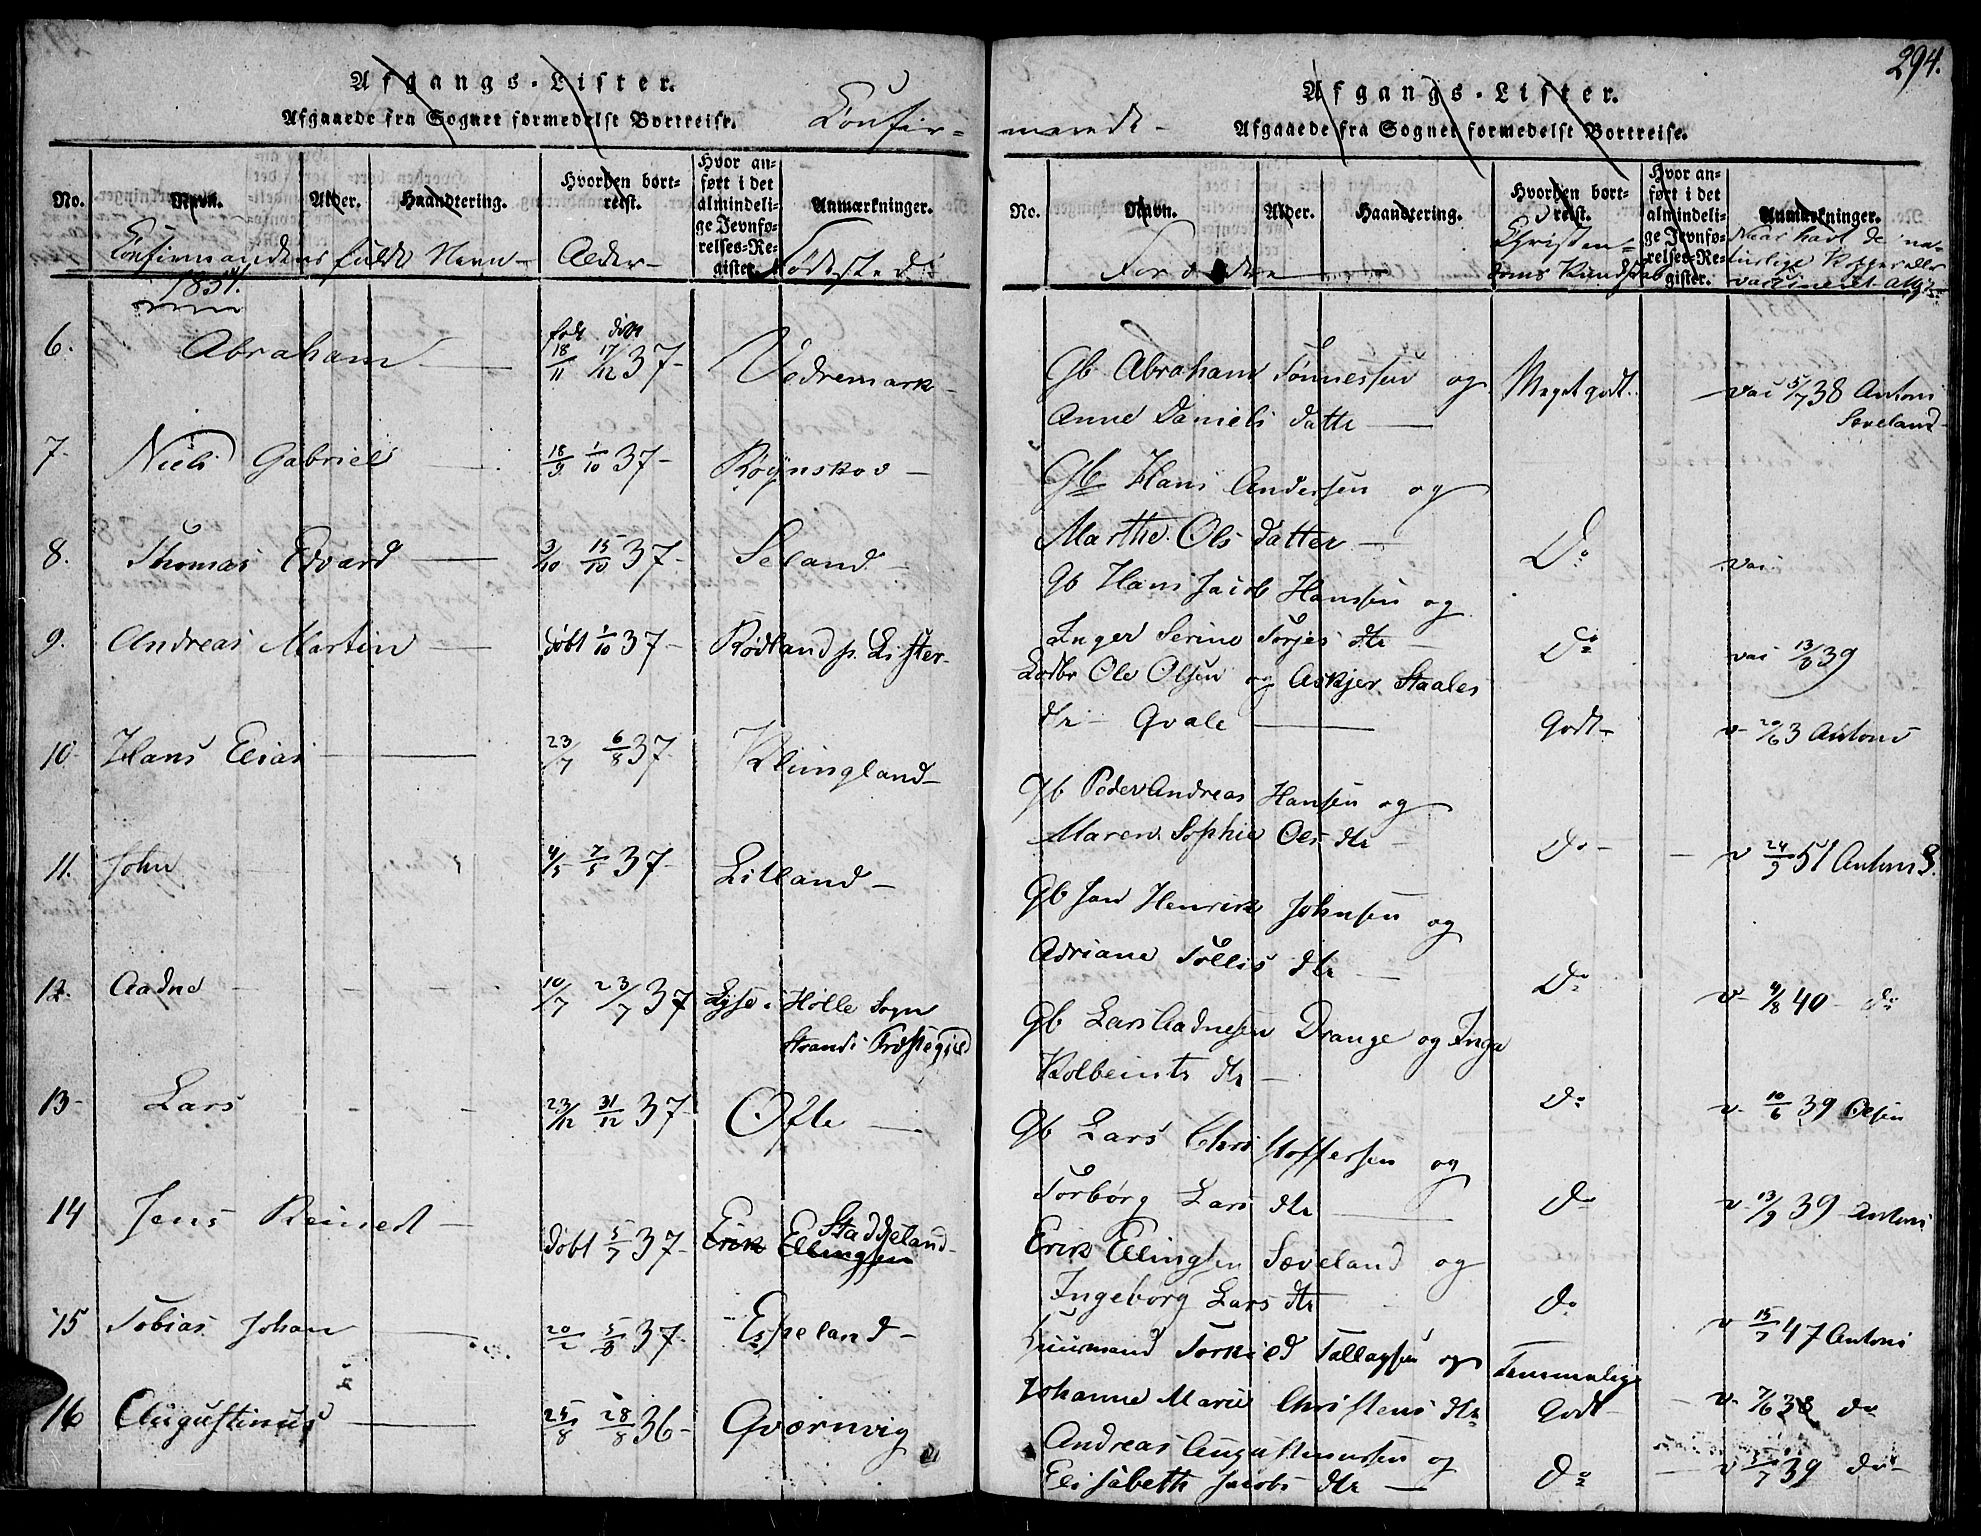 Afgangs-Lister.
Afgaaede fra Sognet formedelst Bortreise.
Confir-
No.
Navn.
Alder.
Haandtering.
Hvorhen bort-
reist.
Hvor an-
ført i det
almindeli-
ge Jevnfø-
relses-Re-
gister.
Anmærkninger.
Confirmandens fulde Navn-
Alder-
Fødested
6.
Abraham
født døbt
18/11 17/12 37-
Vedremark-
7-
Niels Gabriel
18/9 1/10 37-
Røynskov-
8.
Thomas Edvard
3/10 15/10 37-
Seland-
9.
Andreas Martin
døbt 1/10 37-
Rødland p. Lister-
10-
Hans Elias
23/7 6/8 37-
Klungland-
11.
John
4/5 7/5 37-
Litland-
12.
Aadne
10/7 23/7 37
Lyse i Hølle Sogn
Strands Præstegield
13-
Lars
23/12 31/12 37
Ofte
14
Jens Reinert
døbt 5/7 37-
Staddeland-
Erik Ellingsen
15
Tobias Johan
20/2 5/8 37-
Espeland-
16
Augustinus
25/8 28/8 36-
Qværnvig
294.
Afgangs-Lister.
Afgaaede fra Sognet formedelst Bortreise.
mandt-
No.
Navn.
Alder.
Haandtering.
Hvorhen bort-
reist.
Hvor an-
ført i det
almindeli-
ge Jevnfø-
relses-Re-
gister.
Anmærkninger.
Forældre
Christen-
doms Kundskab
Naar havt de na-
turlige Kopper eller
vaccineret
Gb Abraham Tønnessen og
Meget godt.
vac 5/7 38 Antoni
Anne Daniels datte
Sæveland-
Gb Hans Andersen og
Marthe Ols datter
Do
vac
Gb Hans Jacob Hanssen og
Inger Serine Torjes dtr
Do
vac 13/8 39
Ole Olsen og Askjer Staales
dtr- Qvale
Godt-
v- 20/6 3 Antoni
Gb Peder Andreas Hansen og
Maren Sophie Ols dtr
Do-
v 24/9 51 Antoni S.
Gb Jan Henrik Johnsen og
Adriane Tollis dtr
Do
v- 4/8 40- do
Gb Lars Aadnesen Drange og Inga
Kolbeints dtr-
do
v- 10/6 39 Olsen
Gb Lars Christoffersen og
Torbørg Lars dtr
do
v- 13/9 39 Antoni
Erik Ellingsen Sæveland og
Ingeborg Lars dtr
do
v 15/7 47 Antoni
Huusmand Torkield Tallagsen og
Temmelig
Johanne Marie Christens dtr
Godt
v- 7/6 38 do
Andreas Augustinussen og
Elisabeth Jacobs dtr
do
39 do-